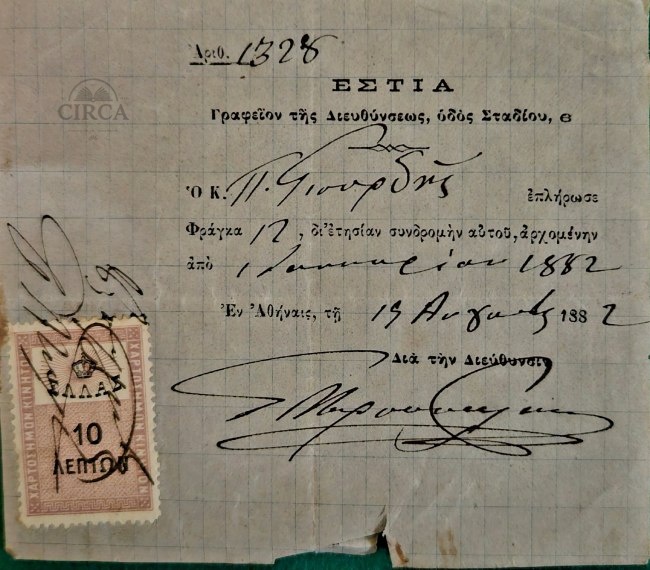 Ἀριθ. 1328
ΕΣΤΙΑ
Γραφεῖον τῆς Διευθύνσεως, ὁδὸς Σταδίου, 6
Ὁ Κ. Π. ἐπλήρωσε
Φράγκα 12, δι' ἐτησίαν συνδρομὴν αὐτοῦ, ἀρχομένην
ἀπὸ 1 Ιανουαρίου 1882
Ἐν Ἀθήναις, τῇ 19 Αυγούστ 1882
Διὰ τὴν Διεύθυνσιν
CIRCA
ΕΛΛΑΣ
10
ΛΕΠΤΩΝ
ΧΑΡΤΟΣΗΜΟΝ ΚΙΝΗΤΟΝ
ΧΑΡΤΟΣΗΜΟΝ ΚΙΝΗΤΟΝ